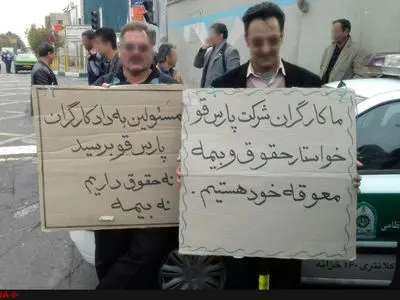 ما کارگران شرکت پارس قو
خواستار حقوق و بیمه
معوقه خود هستیم.
مسئولین به داد کارگران
پارس قو برسید
نه حقوق داریم
نه بیمه
کلانتری ۱۶۰ خزانه